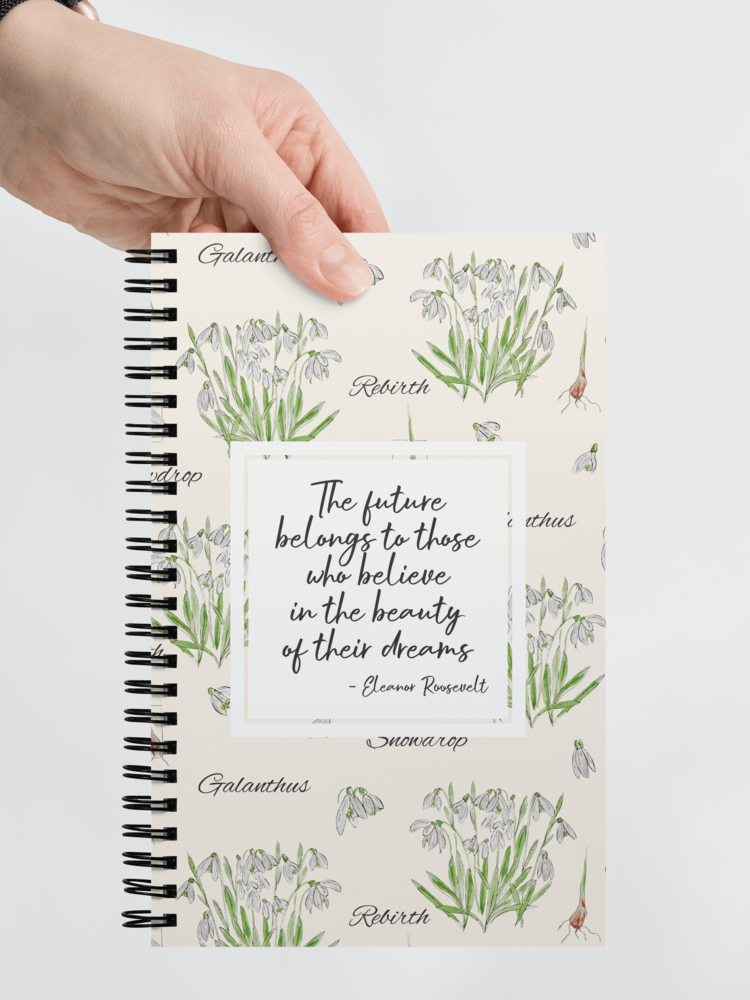 Galant
Rebirth
wdrop
anthus
The future
belongs to those
who believe
in the beauty
of their dreams
- Eleanor Roosevelt
th
Snowdrop
Galanthus
Rebirth